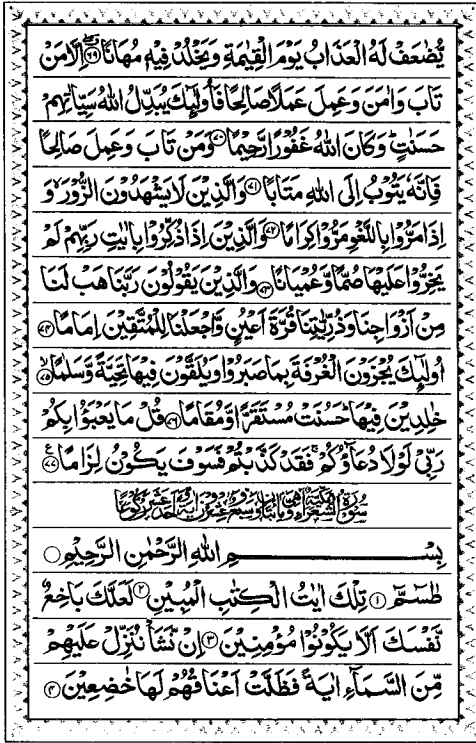 يُّضٰعَفْ لَهُ الْعَذَابُ يَوْمَ الْقِيٰمَةِ وَيَخْلُدْ فِيْهٖ مُهَانًا ﴿۶۹﴾ اِلَّا مَنْ
تَابَ وَاٰمَنَ وَعَمِلَ عَمَلًا صَالِحًا فَاُولٰٓئِكَ يُبَدِّلُ اللّٰهُ سَيِّاٰتِهِمْ
حَسَنٰتٍ ؕ وَكَانَ اللّٰهُ غَفُوْرًا رَّحِيْمًا ﴿۷۰﴾ وَمَنْ تَابَ وَعَمِلَ صَالِحًا
فَاِنَّهٗ يَتُوْبُ اِلَى اللّٰهِ مَتَابًا ﴿۷۱﴾ وَالَّذِيْنَ لَا يَشْهَدُوْنَ الزُّوْرَ ۙ وَ
اِذَا مَرُّوْا بِاللَّغْوِ مَرُّوْا كِرَامًا ﴿۷۲﴾ وَالَّذِيْنَ اِذَا ذُكِّرُوْا بِاٰيٰتِ رَبِّهِمْ لَمْ
يَخِرُّوْا عَلَيْهَا صُمًّا وَّعُمْيَانًا ﴿۷۳﴾ وَالَّذِيْنَ يَقُوْلُوْنَ رَبَّنَا هَبْ لَنَا
مِنْ اَزْوَاجِنَا وَذُرِّيّٰتِنَا قُرَّةَ اَعْيُنٍ وَّاجْعَلْنَا لِلْمُتَّقِيْنَ اِمَامًا ﴿۷۴﴾
اُولٰٓئِكَ يُجْزَوْنَ الْغُرْفَةَ بِمَا صَبَرُوْا وَيُلَقَّوْنَ فِيْهَا تَحِيَّةً وَّسَلٰمًا ﴿۷۵﴾
خٰلِدِيْنَ فِيْهَا ؕ حَسُنَتْ مُسْتَقَرًّا وَّمُقَامًا ﴿۷۶﴾ قُلْ مَا يَعْبَؤُا بِكُمْ
رَبِّيْ لَوْلَا دُعَآؤُكُمْ ۚ فَقَدْ كَذَّبْتُمْ فَسَوْفَ يَكُوْنُ لِزَامًا ﴿۷۷﴾
سُوْرَةُ الشُّعَرَآءِ مَكِّيَّةٌ وَّهِيَ مِائَتَانِ وَسَبْعٌ وَّعِشْرُوْنَ اٰيَةً وَّاَحَدَ عَشَرَ رُكُوْعًا
بِسْمِ اللّٰهِ الرَّحْمٰنِ الرَّحِيْمِ
طٰسٓمّٓ ﴿۱﴾ تِلْكَ اٰيٰتُ الْكِتٰبِ الْمُبِيْنِ ﴿۲﴾ لَعَلَّكَ بَاخِعٌ
نَّفْسَكَ اَلَّا يَكُوْنُوْا مُؤْمِنِيْنَ ﴿۳﴾ اِنْ نَّشَاْ نُنَزِّلْ عَلَيْهِمْ
مِّنَ السَّمَآءِ اٰيَةً فَظَلَّتْ اَعْنَاقُهُمْ لَهَا خٰضِعِيْنَ ﴿۴﴾